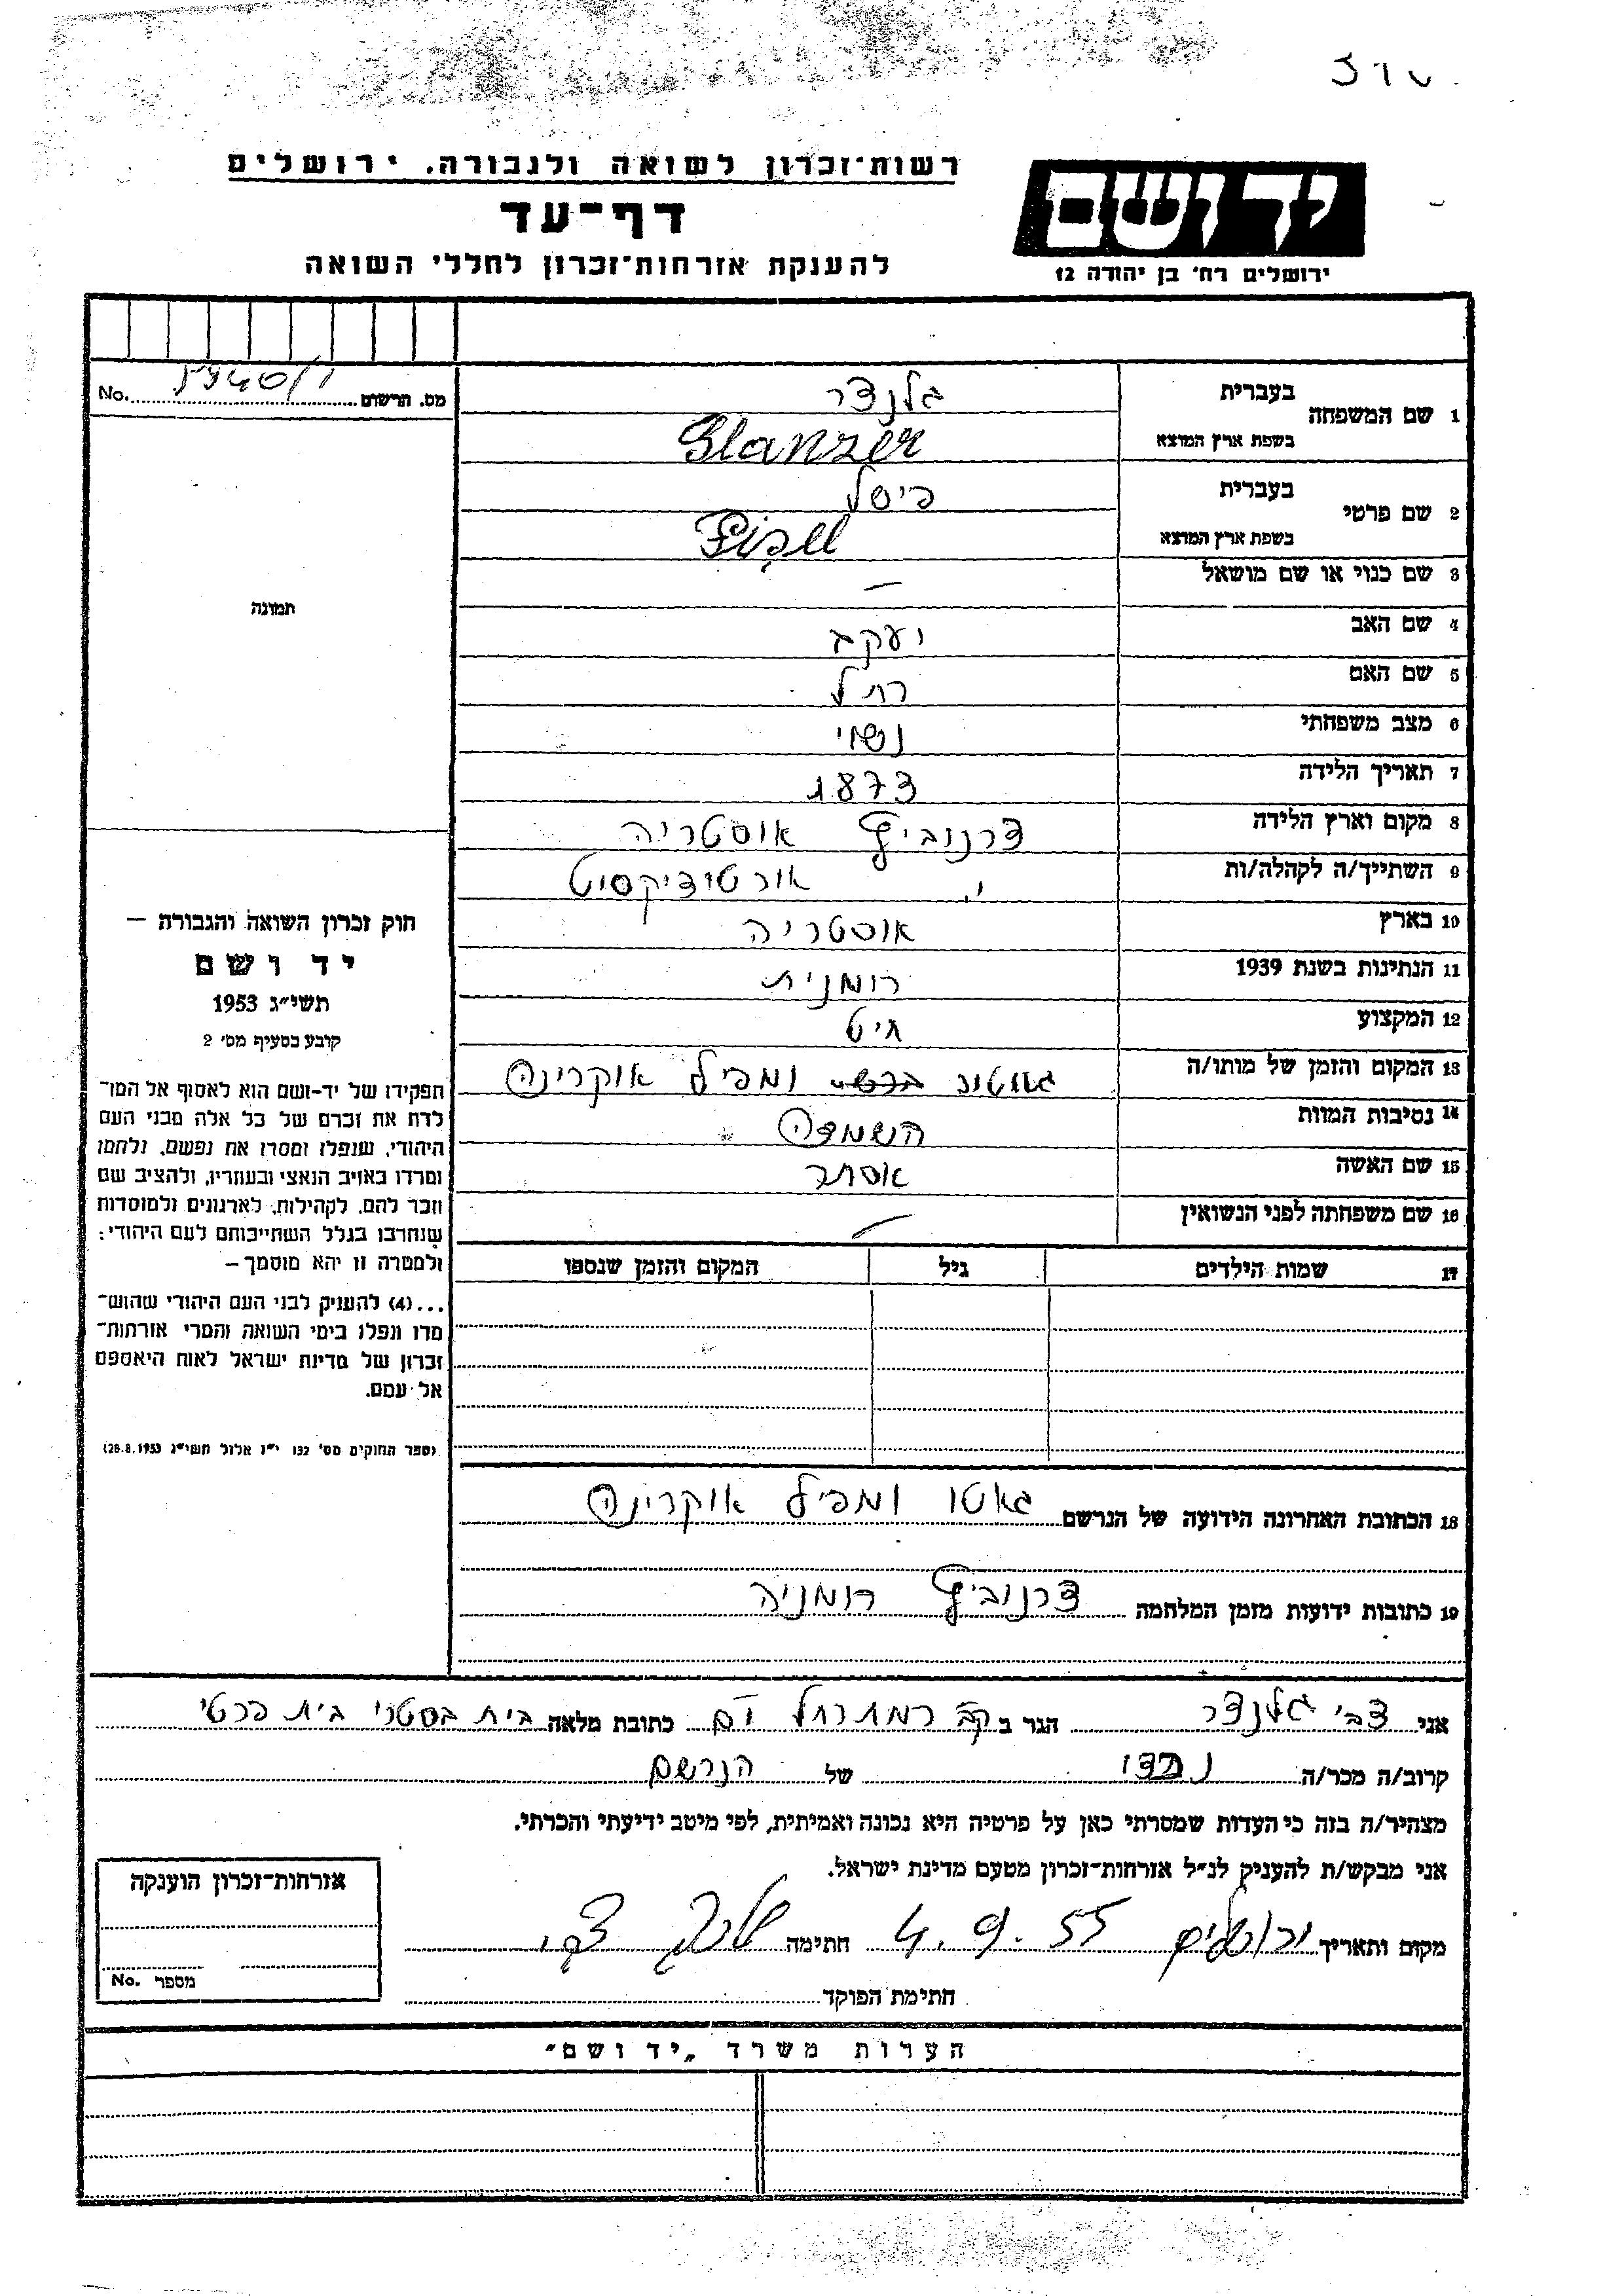 רשות־זכרון לשואה ולגבורה. ירושלים
דף־עד
להענקת אזרחות־זכרון לחללי השואה
יד ושם
ירושלים רח' בן יהודה 12
מס. תרשום No.
1 שם המשפחה בעברית גלנצר
בשפת ארץ המוצא Glanzer
2 שם פרטי בעברית פיסל
בשפת ארץ המוצא
3 שם כנוי או שם מושאל —
4 שם האב יעקב
5 שם האם רחל
6 מצב משפחתי נשוי
7 תאריך הלידה 1873
8 מקום וארץ הלידה צרנוביץ אוסטריה
9 השתייך/ה לקהלה/ות
10 בארץ אוסטריה
11 הנתינות בשנת 1939 רומנית
12 המקצוע חיט
13 המקום והזמן של מותו/ה ומפיל אוקרינה
14 נסיבות המוות השמדה
15 שם האשה אסתר
16 שם משפחתה לפני הנשואין —
17 שמות הילדים גיל המקום והזמן שנספו
18 הכתובת האחרונה הידועה של הנרשם גאטו ומפיל אוקרינה
19 כתובות ידועות מזמן המלחמה צרנוביץ רומניה
תמונה
חוק זכרון השואה והגבורה —
יד ושם
תשי"ג 1953
קובע בסעיף מס' 2
תפקידו של יד-ושם הוא לאסוף אל המו־
לדת את זכרם של כל אלה מבני העם
היהודי, שנפלו ומסרו את נפשם, נלחמו
ומרדו באויב הנאצי ובעוזריו, ולהציב שם
וזכר להם, לקהילות, לארגונים ולמוסדות
שנחרבו בגלל השתייכותם לעם היהודי;
ולמטרה זו יהא מוסמך —
...(4) להעניק לבני העם היהודי שהוש־
מדו ונפלו בימי השואה והמרי אזרחות־
זכרון של מדינת ישראל לאות היאספם
אל עמם.
(ספר החוקים מס' 132 י"ז אלול תשי"ג 28.8.1953)
אני צבי גלנצר הגר ב רמת רחל כתובת מלאה בית פרטי
קרוב/ה מכר/ה נכדו של הנרשם
מצהיר/ה בזה כי העדות שמסרתי כאן על פרטיה היא נכונה ואמיתית, לפי מיטב ידיעתי והכרתי.
אני מבקש/ת להעניק לנ"ל אזרחות־זכרון מטעם מדינת ישראל.
מקום ותאריך ירושלים 4.9.55 חתימה
חתימת הפוקד
אזרחות־זכרון הוענקה
מספר No.
הערות משרד "יד ושם"